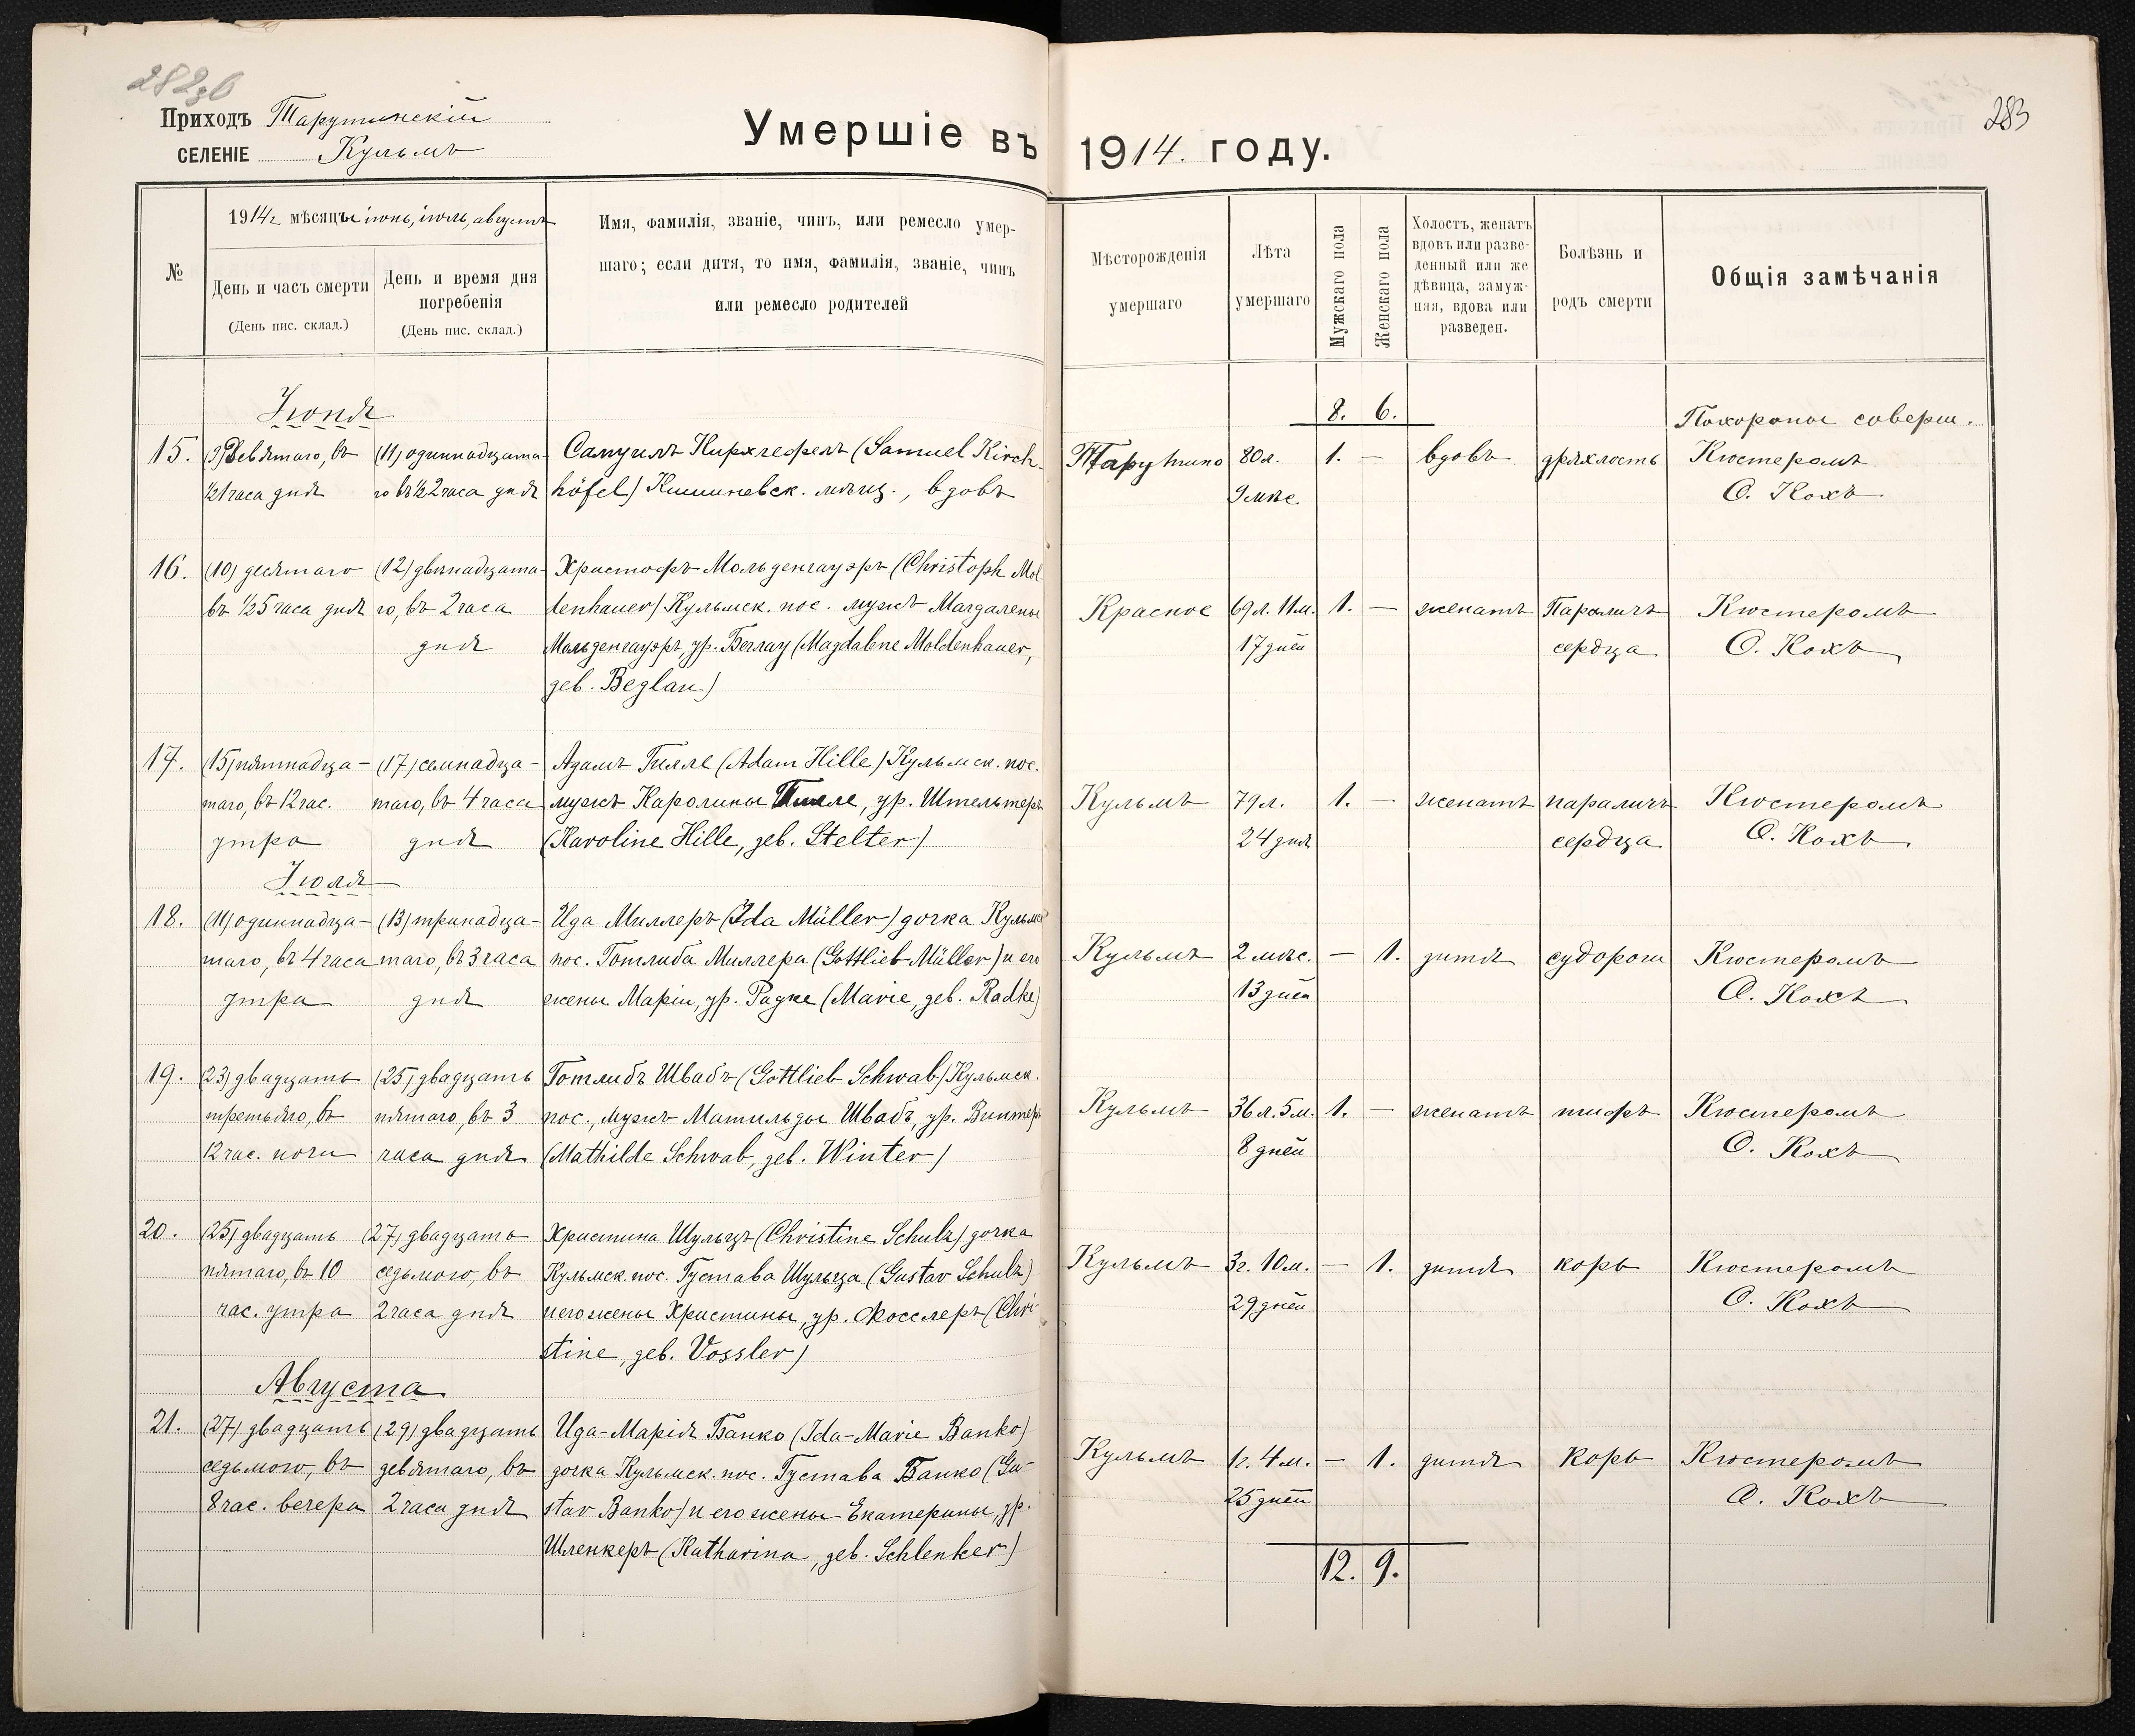 282об
283
Приходъ Тарутинскій
СЕЛЕНІЕ Кульмъ
Умершіе въ 1914. году.
№
1914г. мѣсяцъ іюнь, іюль, августъ
День и часъ смерти
(День пис. склад.)
День и время дня
погребенія
(День пис. склад.)
Имя, фамилія, званіе, чинъ, или ремесло умер-
шаго; если дитя, то имя, фамилія, званіе, чинъ
или ремесло родителей
Мѣсторожденія
умершаго
Лѣта
умершаго
Мужскаго пола
Женскаго пола
Холостъ, женатъ
вдовъ или разве-
денный или же
дѣвица, замуж-
няя, вдова или
разведен.
Болѣзнь и
родъ смерти
Общія замѣчанія
Іюня
8. 6.
Похороны соверш.
15.
(9) Девятаго, въ
½1 часа дня
(11) одиннадцата-
го въ ½2 часа дня
Самуилъ Кирхгефелъ (Samuel Kirch-
höfel) Кишиневск. мѣщ., вдовъ
Тарутино
80 л.
9 мѣс.
1. —
вдовъ
дряхлость
Кюстеромъ
О. Кохъ
16.
(10) десятаго
въ ½5 часа дня
(12) двѣнадцата-
го, въ 2 часа
дня
Христофъ Мольденгауэръ (Christoph Mol-
denhauer) Кульмск. пос. мужъ Магдалены
Мольденгауэръ, ур. Беглау (Magdalene Moldenhauer,
geb. Beglau)
Красное
69 л. 11 м.
17 дней
1. —
женатъ
Параличъ
сердца
Кюстеромъ
О. Кохъ
17.
(15) пятнадца-
таго, въ 12 час.
утра
(17) семнадца-
таго, въ 4 часа
дня
Адамъ Гилле (Adam Hille) Кульмск. пос.
мужъ Каролины Гилле, ур. Штельтеръ
(Karoline Hille, geb. Stelter)
Кульмъ
79 л.
24 дня
1. —
женатъ
параличъ
сердца
Кюстеромъ
О. Кохъ
Іюля
18.
(11) одиннадца-
таго, въ 4 часа
утра
(13) тринадца-
таго, въ 3 часа
дня
Ида Миллеръ (Ida Müller) дочка Кульмск
пос. Готлиба Миллера (Gottlieb Müller) и его
жены Маріи, ур. Радке (Marie, geb. Radke)
Кульмъ
2 мѣс.
13 дней
— 1.
дитя
судороги
Кюстеромъ
О. Кохъ
19.
(23) двадцать
третьяго, въ
12 час. ночи
(25) двадцать
пятаго, въ 3
часа дня
Готлибъ Швабъ (Gottlieb Schwab) Кульмск.
пос., мужъ Матильды Швабъ, ур. Винтеръ
(Mathilde Schwab, geb. Winter)
Кульмъ
36 л. 5 м.
8 дней
1. —
женатъ
тифъ
Кюстеромъ
О. Кохъ
20.
(25) двадцать
пятаго, въ 10
час. утра
(27) двадцать
седьмого, въ
2 часа дня
Христина Шульцъ (Christine Schulz) дочка
Кульмск. пос. Густава Шульца (Gustav Schulz)
и его жены Христины, ур. Фосслеръ (Chri-
stine, geb. Vossler)
Кульмъ
3 г. 10 м.
29 дней
— 1.
дитя
корь
Кюстеромъ
О. Кохъ
Августа
21.
(27) двадцать
седьмого, въ
8 час. вечера
(29) двадцать
девятаго, въ
2 часа дня
Ида-Марія Банко (Ida-Marie Banko)
дочка Кульмск. пос. Густава Банко (Gu-
stav Banko) и его жены Екатерины, ур.
Шленкеръ (Katharina, geb. Schlenker)
Кульмъ
1 г. 4 м.
25 дней
— 1.
дитя
Корь
Кюстеромъ
О. Кохъ
12. 9.